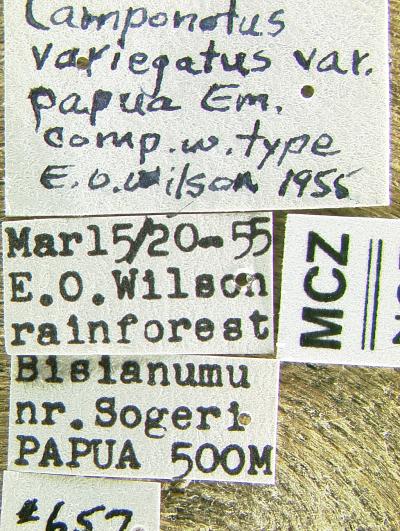 Camponotus
variegatus var.
papua Em.
comp.w.type
E.O.Wilson 1955
Mar15/20-55
E.O.Wilson
rainforest
MCZ
Bisianumu
nr.Sogeri
PAPUA 500M
#657